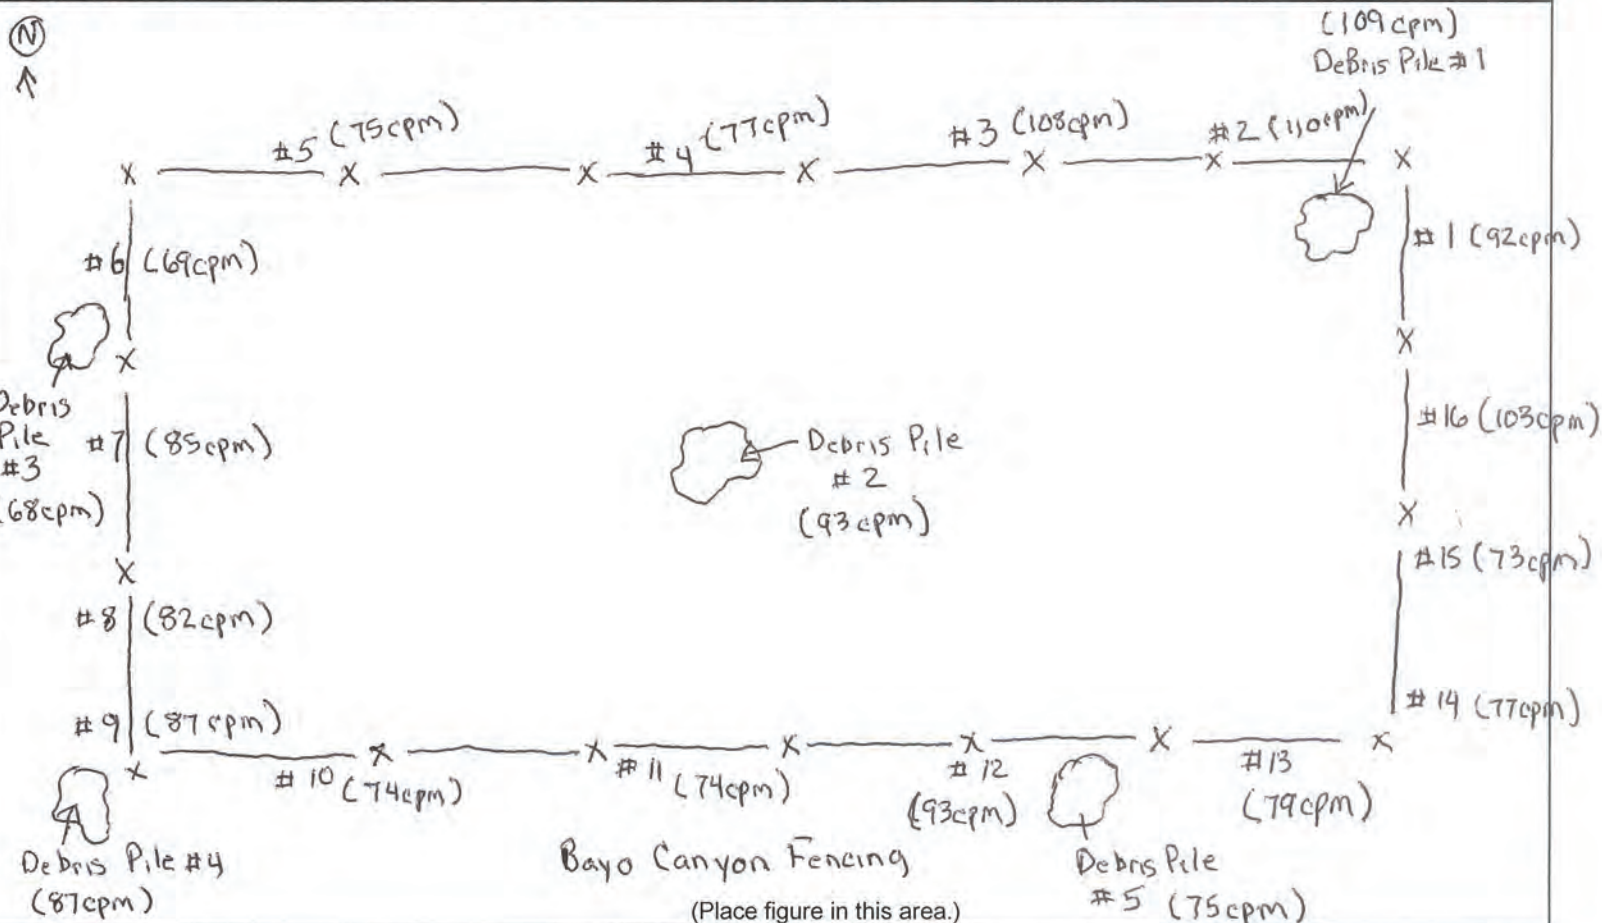 N
(109cpm)
DeBris Pile #1
#5 (75cpm)
#4 (77cpm)
#3 (108cpm)
#2 (110cpm)
#1 (92cpm)
#6 (69cpm)
#16 (103cpm)
Debris
Pile
#3
(68cpm)
#7 (85cpm)
Debris Pile
#2
(93cpm)
#15 (73cpm)
#8 (82cpm)
#9 (87cpm)
#14 (77cpm)
#10 (74cpm)
#11 (74cpm)
#12
(93cpm)
#13
(79cpm)
Debris Pile #4
(87cpm)
Bayo Canyon Fencing
Debris Pile
#5 (75cpm)
(Place figure in this area.)